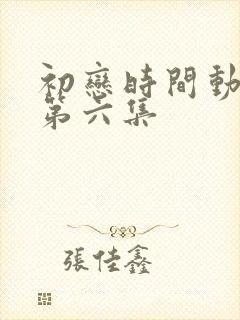 初戀時間動
第六集
張佳鑫